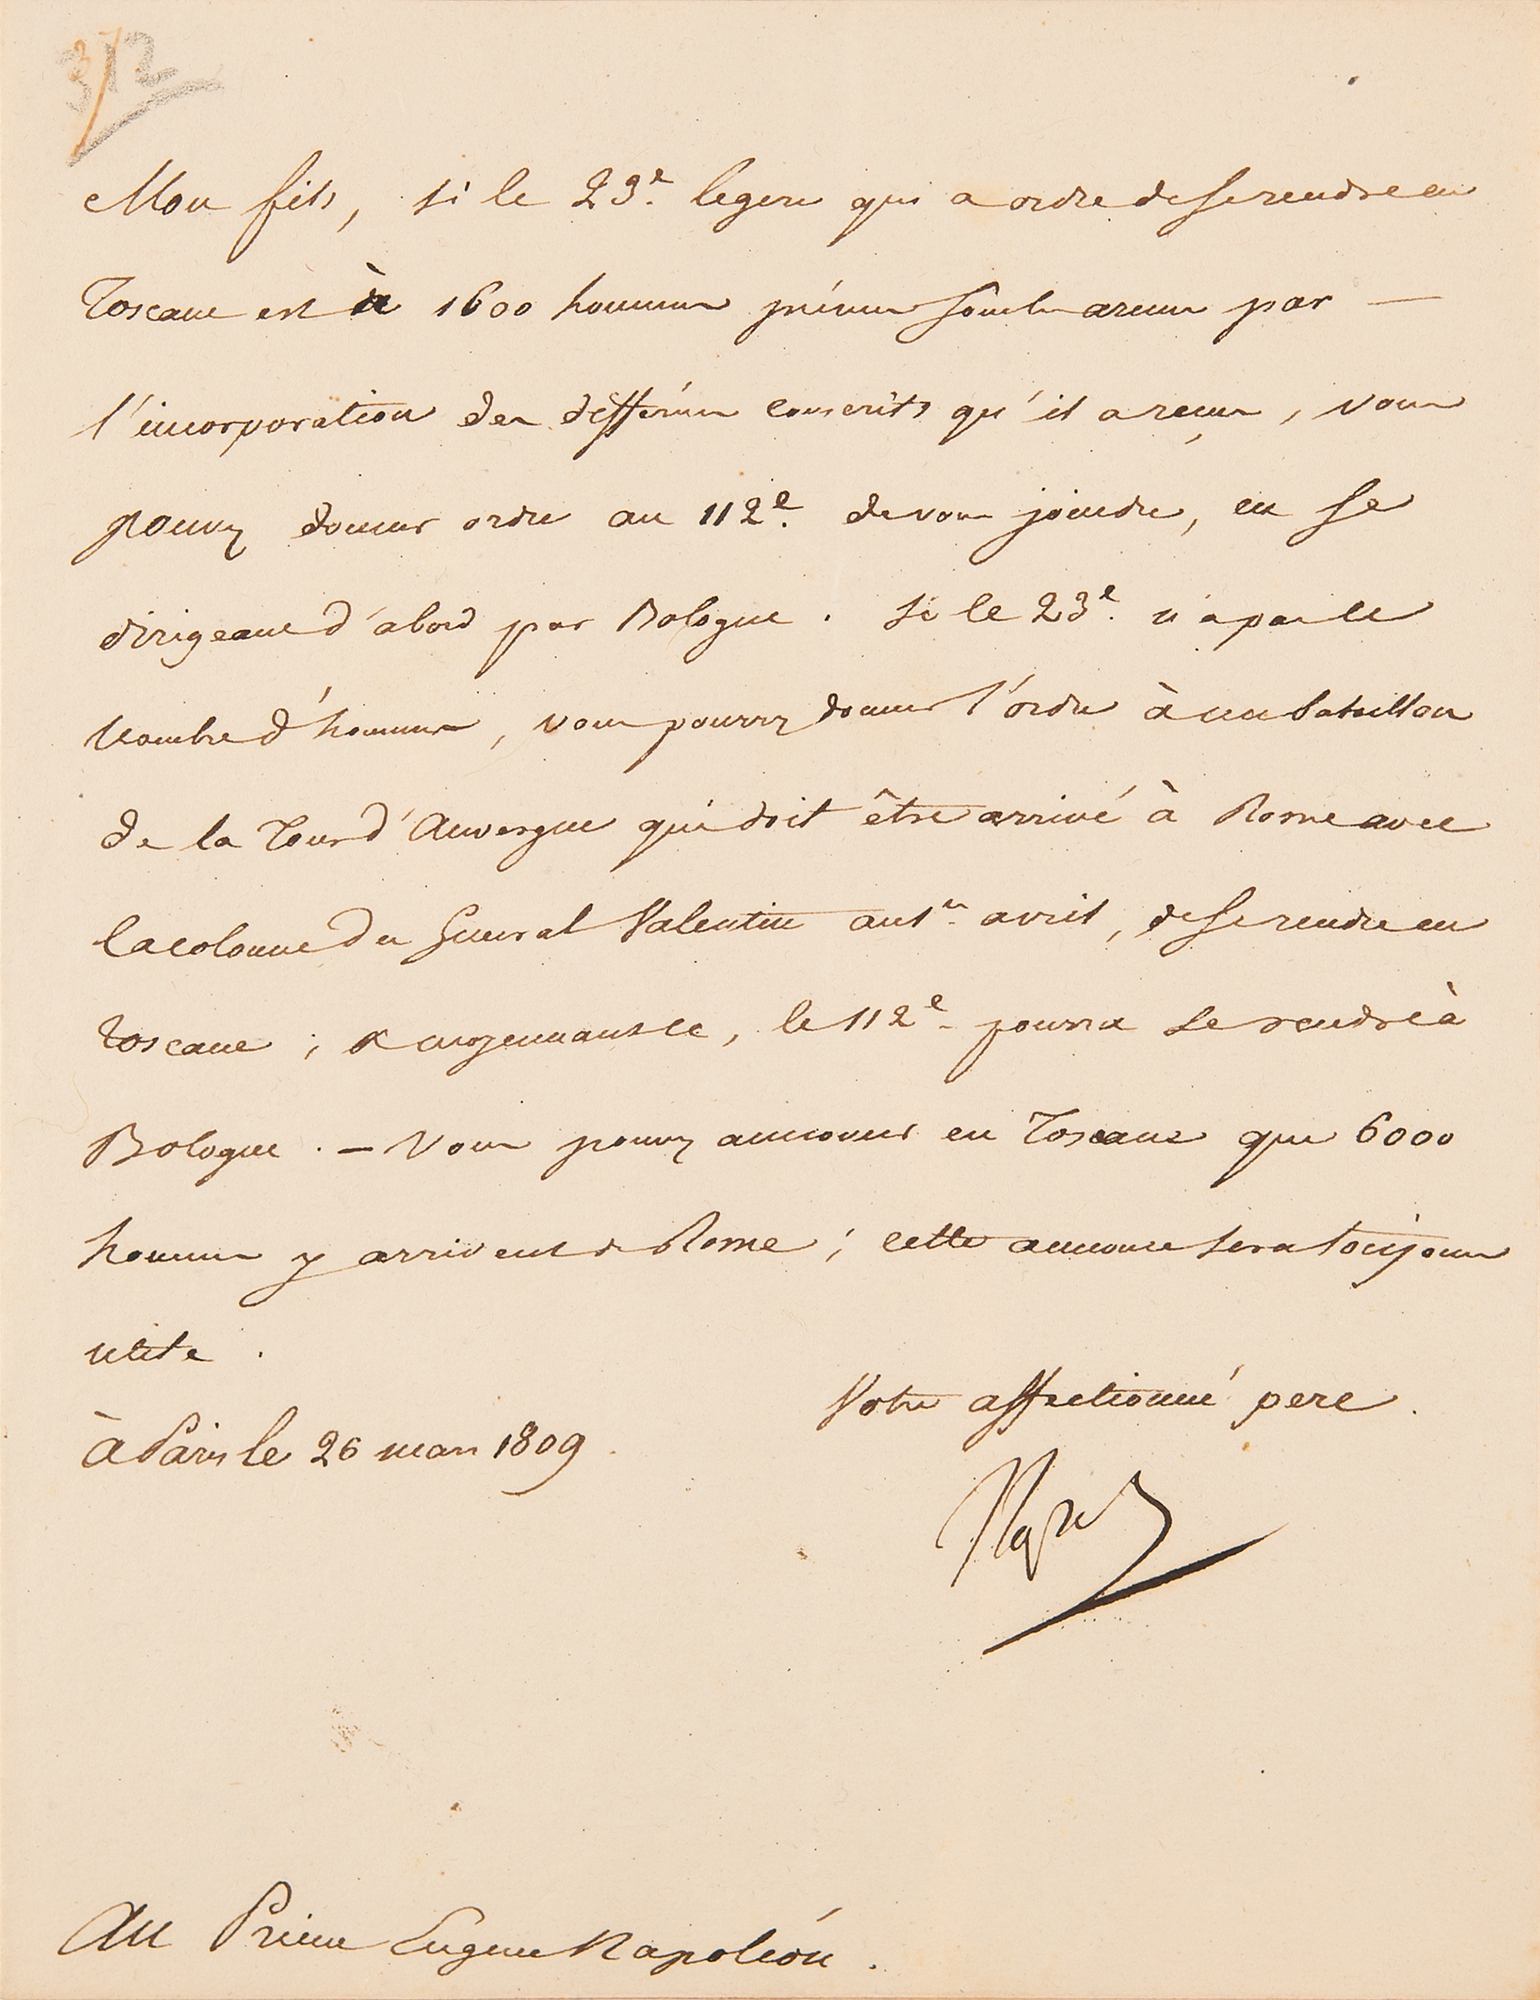 372
Mon fils, si le 23e. legere qui a ordre de se rendre en
Toscane est à 1600 hommes présens sous les armes par —
l'incorporation des differens conscrits qu'il a reçus, vous
pouvez donner ordre au 112e. de vous joindre, en se
dirigeant d'abord par Bologne. Si le 23e. n'a pas ce
nombre d'hommes, vous pourrez donner l'ordre à un bataillon
de la Tour d'Auvergne qui doit être arrivé à Rome avec
la colonne du General Valentin au 1er. avril, de se rendre en
Toscane; & moyennant ce, le 112e. pourra se rendre à
Bologne. — Vous pouvez annoncer en Toscane que 6000
hommes y arrivent de Rome; cette annonce sera toujours
utile.
Votre affectionné pere.
à Paris le 26 mars 1809.
Nap
Au Prince Eugene Napoléon.